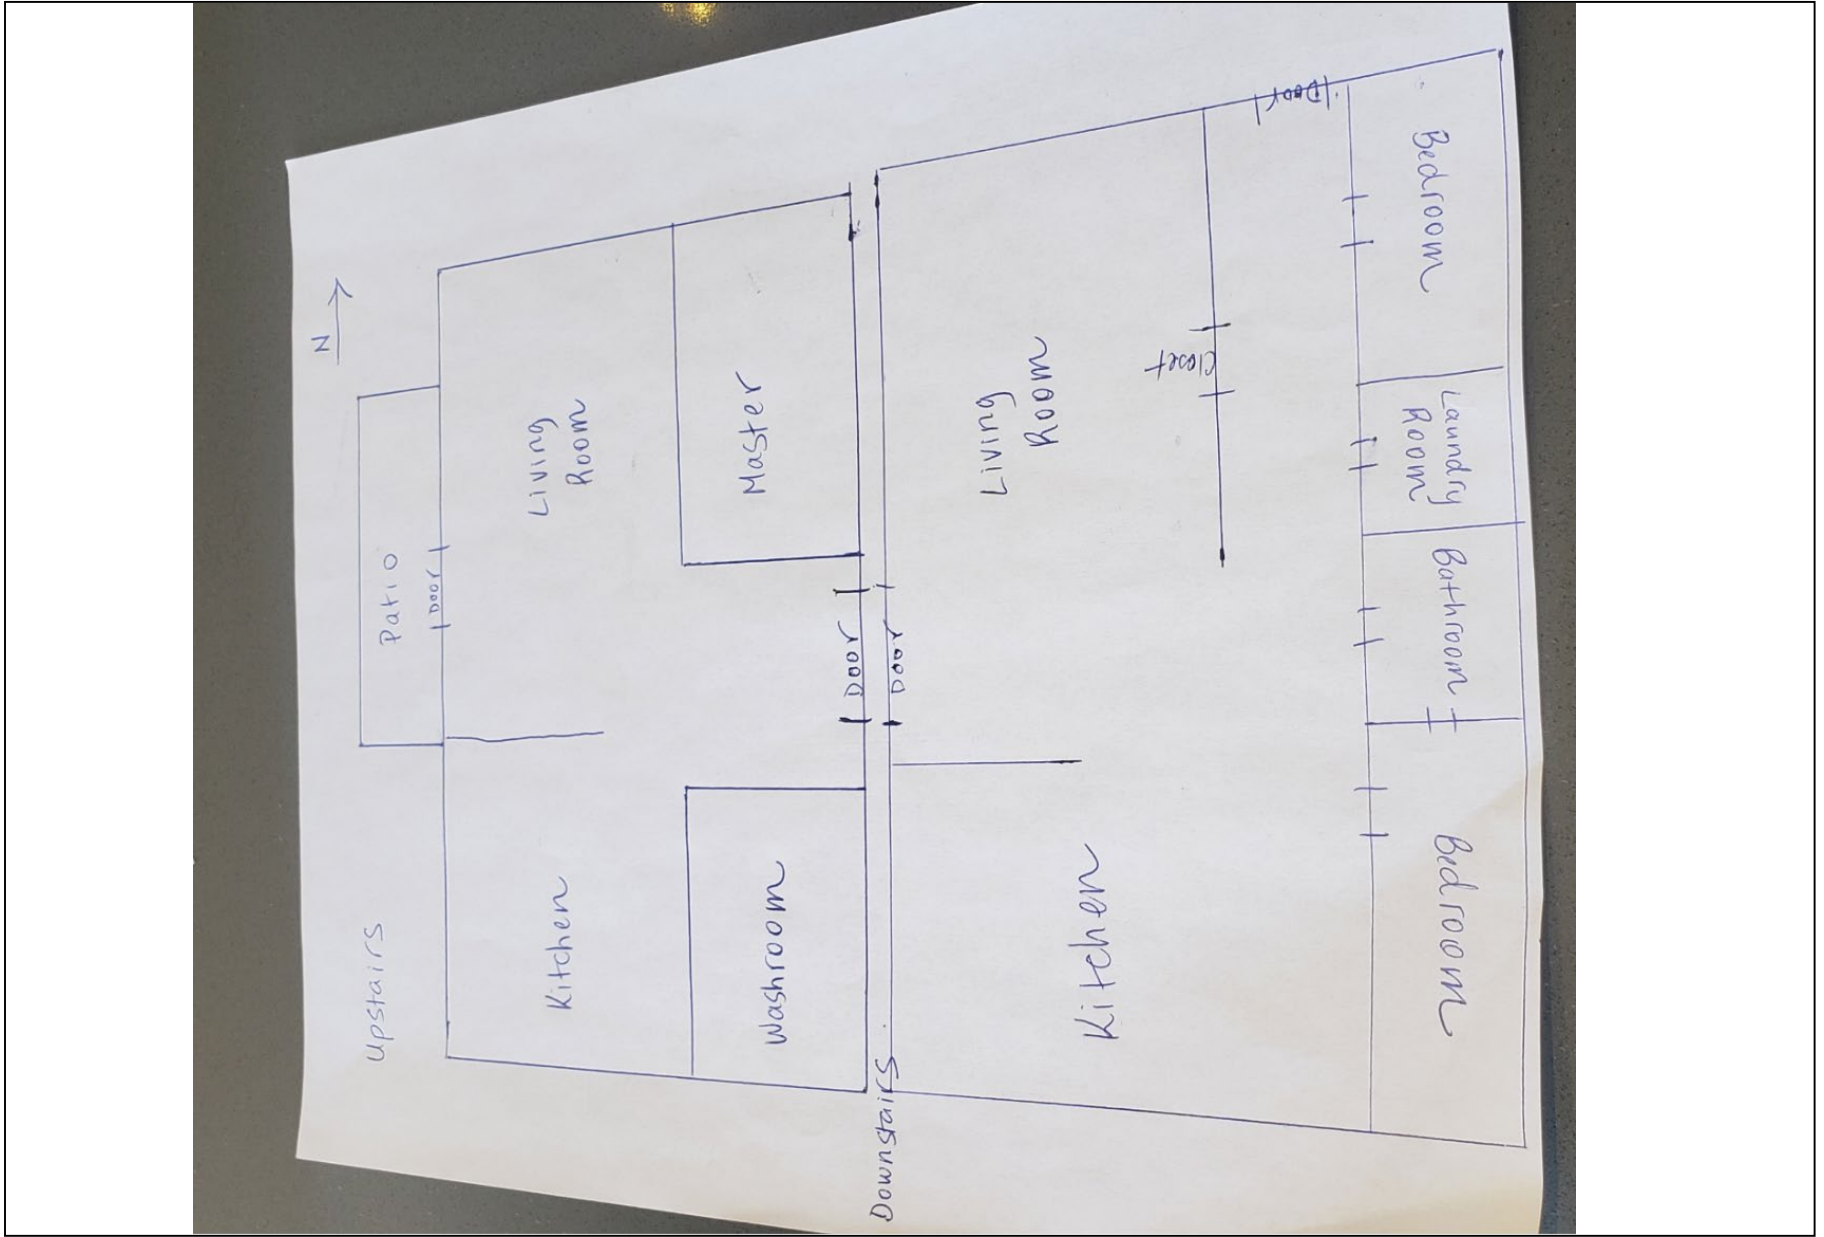 Upstairs
N
Patio
Door
Living
Room
Kitchen
Master
Washroom
Door
Downstairs
Door
Living
Room
Kitchen
Closet
Door
Bedroom
Laundry
Room
Bathroom
Bedroom